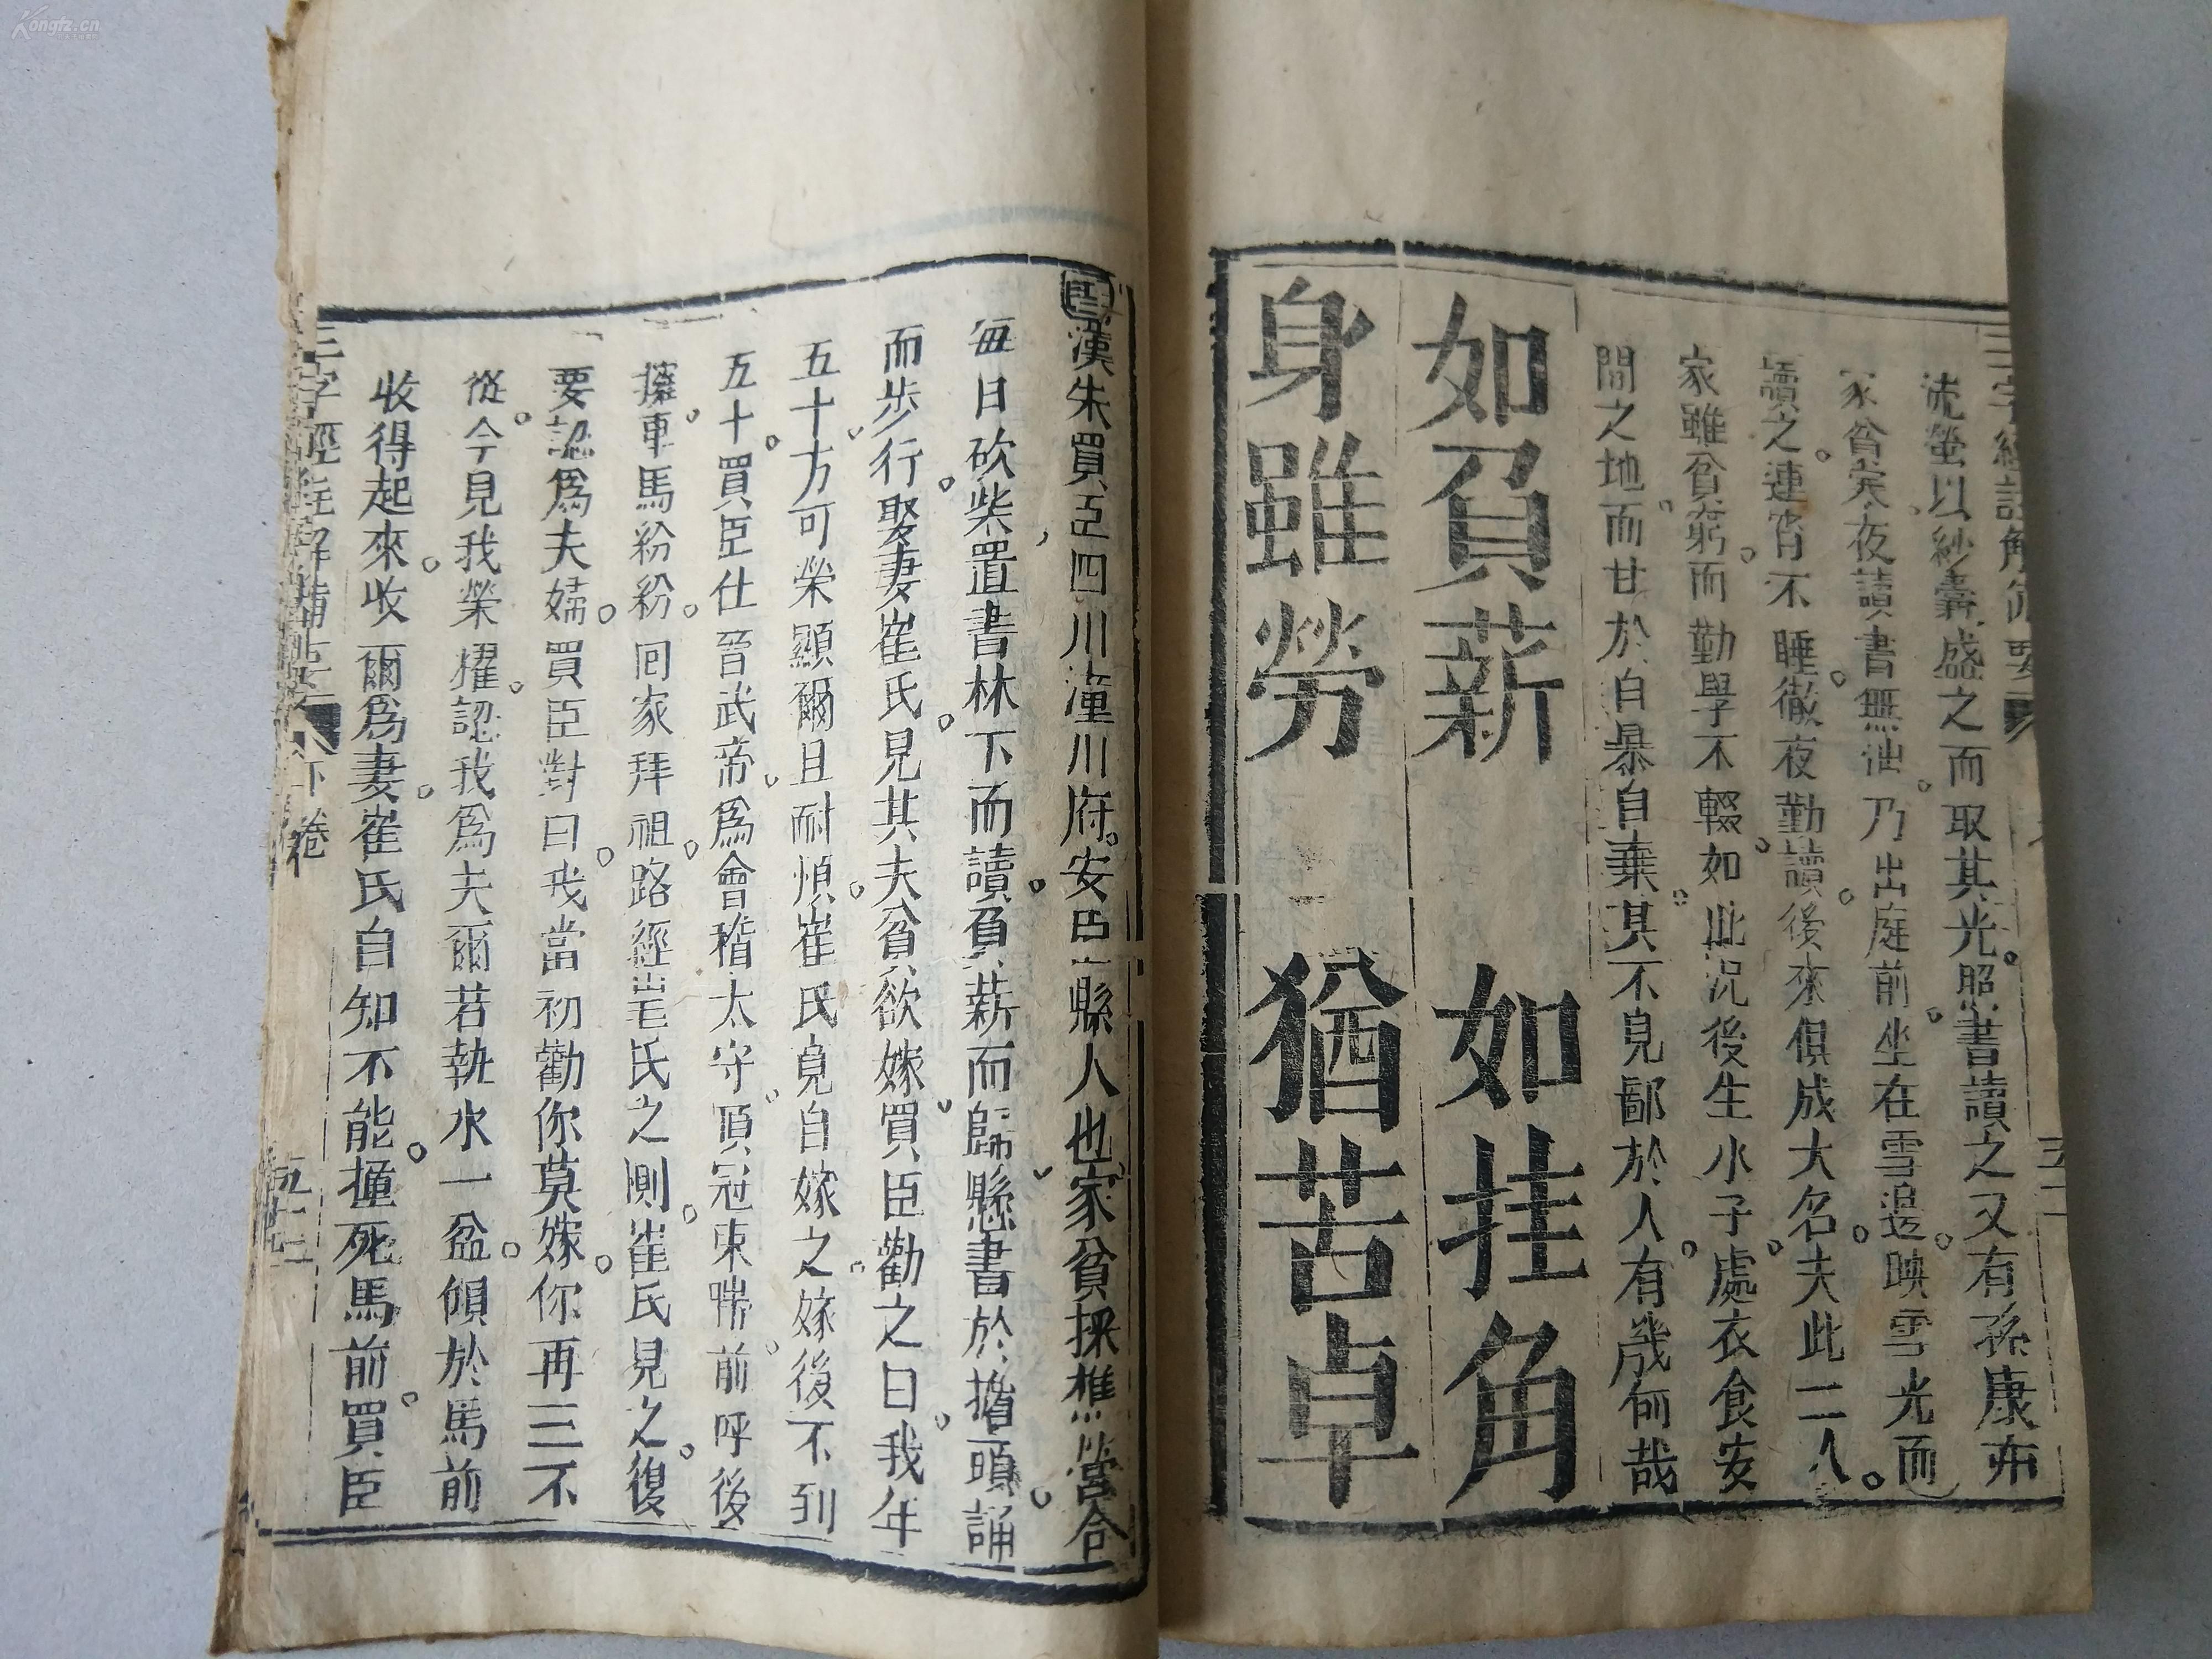 Kongfz.cn
流螢以紗囊盛之而取其光照書讀之又有孫康亦
家貧矣夜讀書無油乃出庭前坐在雪邊映雪光而
讀之連宵不睡徹夜勤讀後來俱成大名夫此二人
家雖貧窮而勤學不輟如此況後生小子處衣食安
閒之地而甘於自暴自棄其不見鄙於人有幾何哉
如負薪 如挂角
身雖勞 猶苦卓
漢朱買臣四川潼川府安岳縣人也家貧採樵營合
每日砍柴置書林下而讀負薪而歸懸書於擔頭誦
而步行娶妻崔氏見其夫貧欲嫁買臣勸之曰我年
五十方可榮顯爾且耐煩崔氏竟自嫁之嫁後不到
五十買臣仕晉武帝為會稽太守頂冠束帶前呼後
擁車馬紛紛回家拜祖路經崔氏之側崔氏見之復
要認為夫婦買臣對曰我當初勸你莫嫁你再三不
從今見我榮耀認我為夫爾若執水一盆傾於馬前
收得起來收爾為妻崔氏自知不能撞死馬前買臣
三字經註解備要 下卷